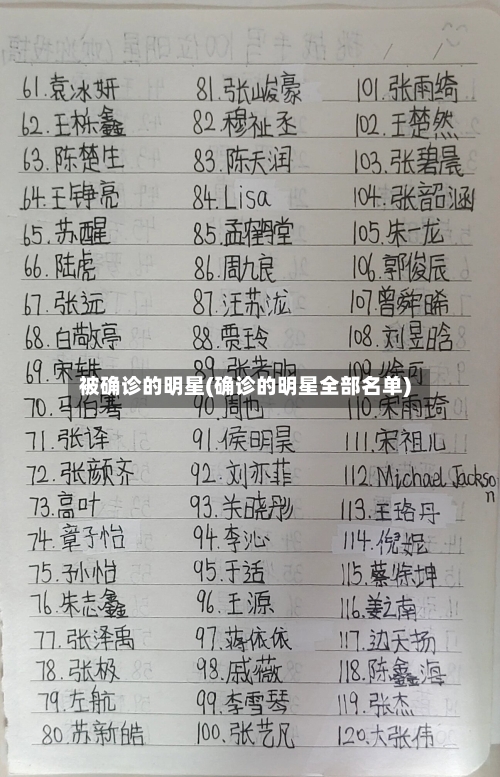 61.袁冰妍
62.王栎鑫
63.陈楚生
64.王铮亮
65.苏醒
66.陆虎
67.张远
68.白敬亭
69.宋轶
70.马伯骞
71.张译
72.张颜齐
73.高叶
74.章子怡
75.孙怡
76.朱志鑫
77.张泽禹
78.张极
79.左航
80.苏新皓
81.张峻豪
82.穆祉丞
83.陈天润
84.Lisa
85.孟鹤堂
86.周九良
87.汪苏泷
88.贾玲
89.张若昀
90.周也
91.侯明昊
92.刘亦菲
93.关晓彤
94.李沁
95.于适
96.王源
97.蒋依依
98.戚薇
99.李雪琴
100.张艺凡
101.张雨绮
102.王楚然
103.张碧晨
104.张韶涵
105.朱一龙
106.郭俊辰
107.曾舜晞
108.刘昱晗
109.徐
110.宋雨琦
111.宋祖儿
112.Michael Jackson
113.王珞丹
114.倪妮
115.蔡徐坤
116.姜之南
117.边天扬
118.陈鑫海
119.张杰
120.大张伟
被确诊的明星(确诊的明星全部名单)